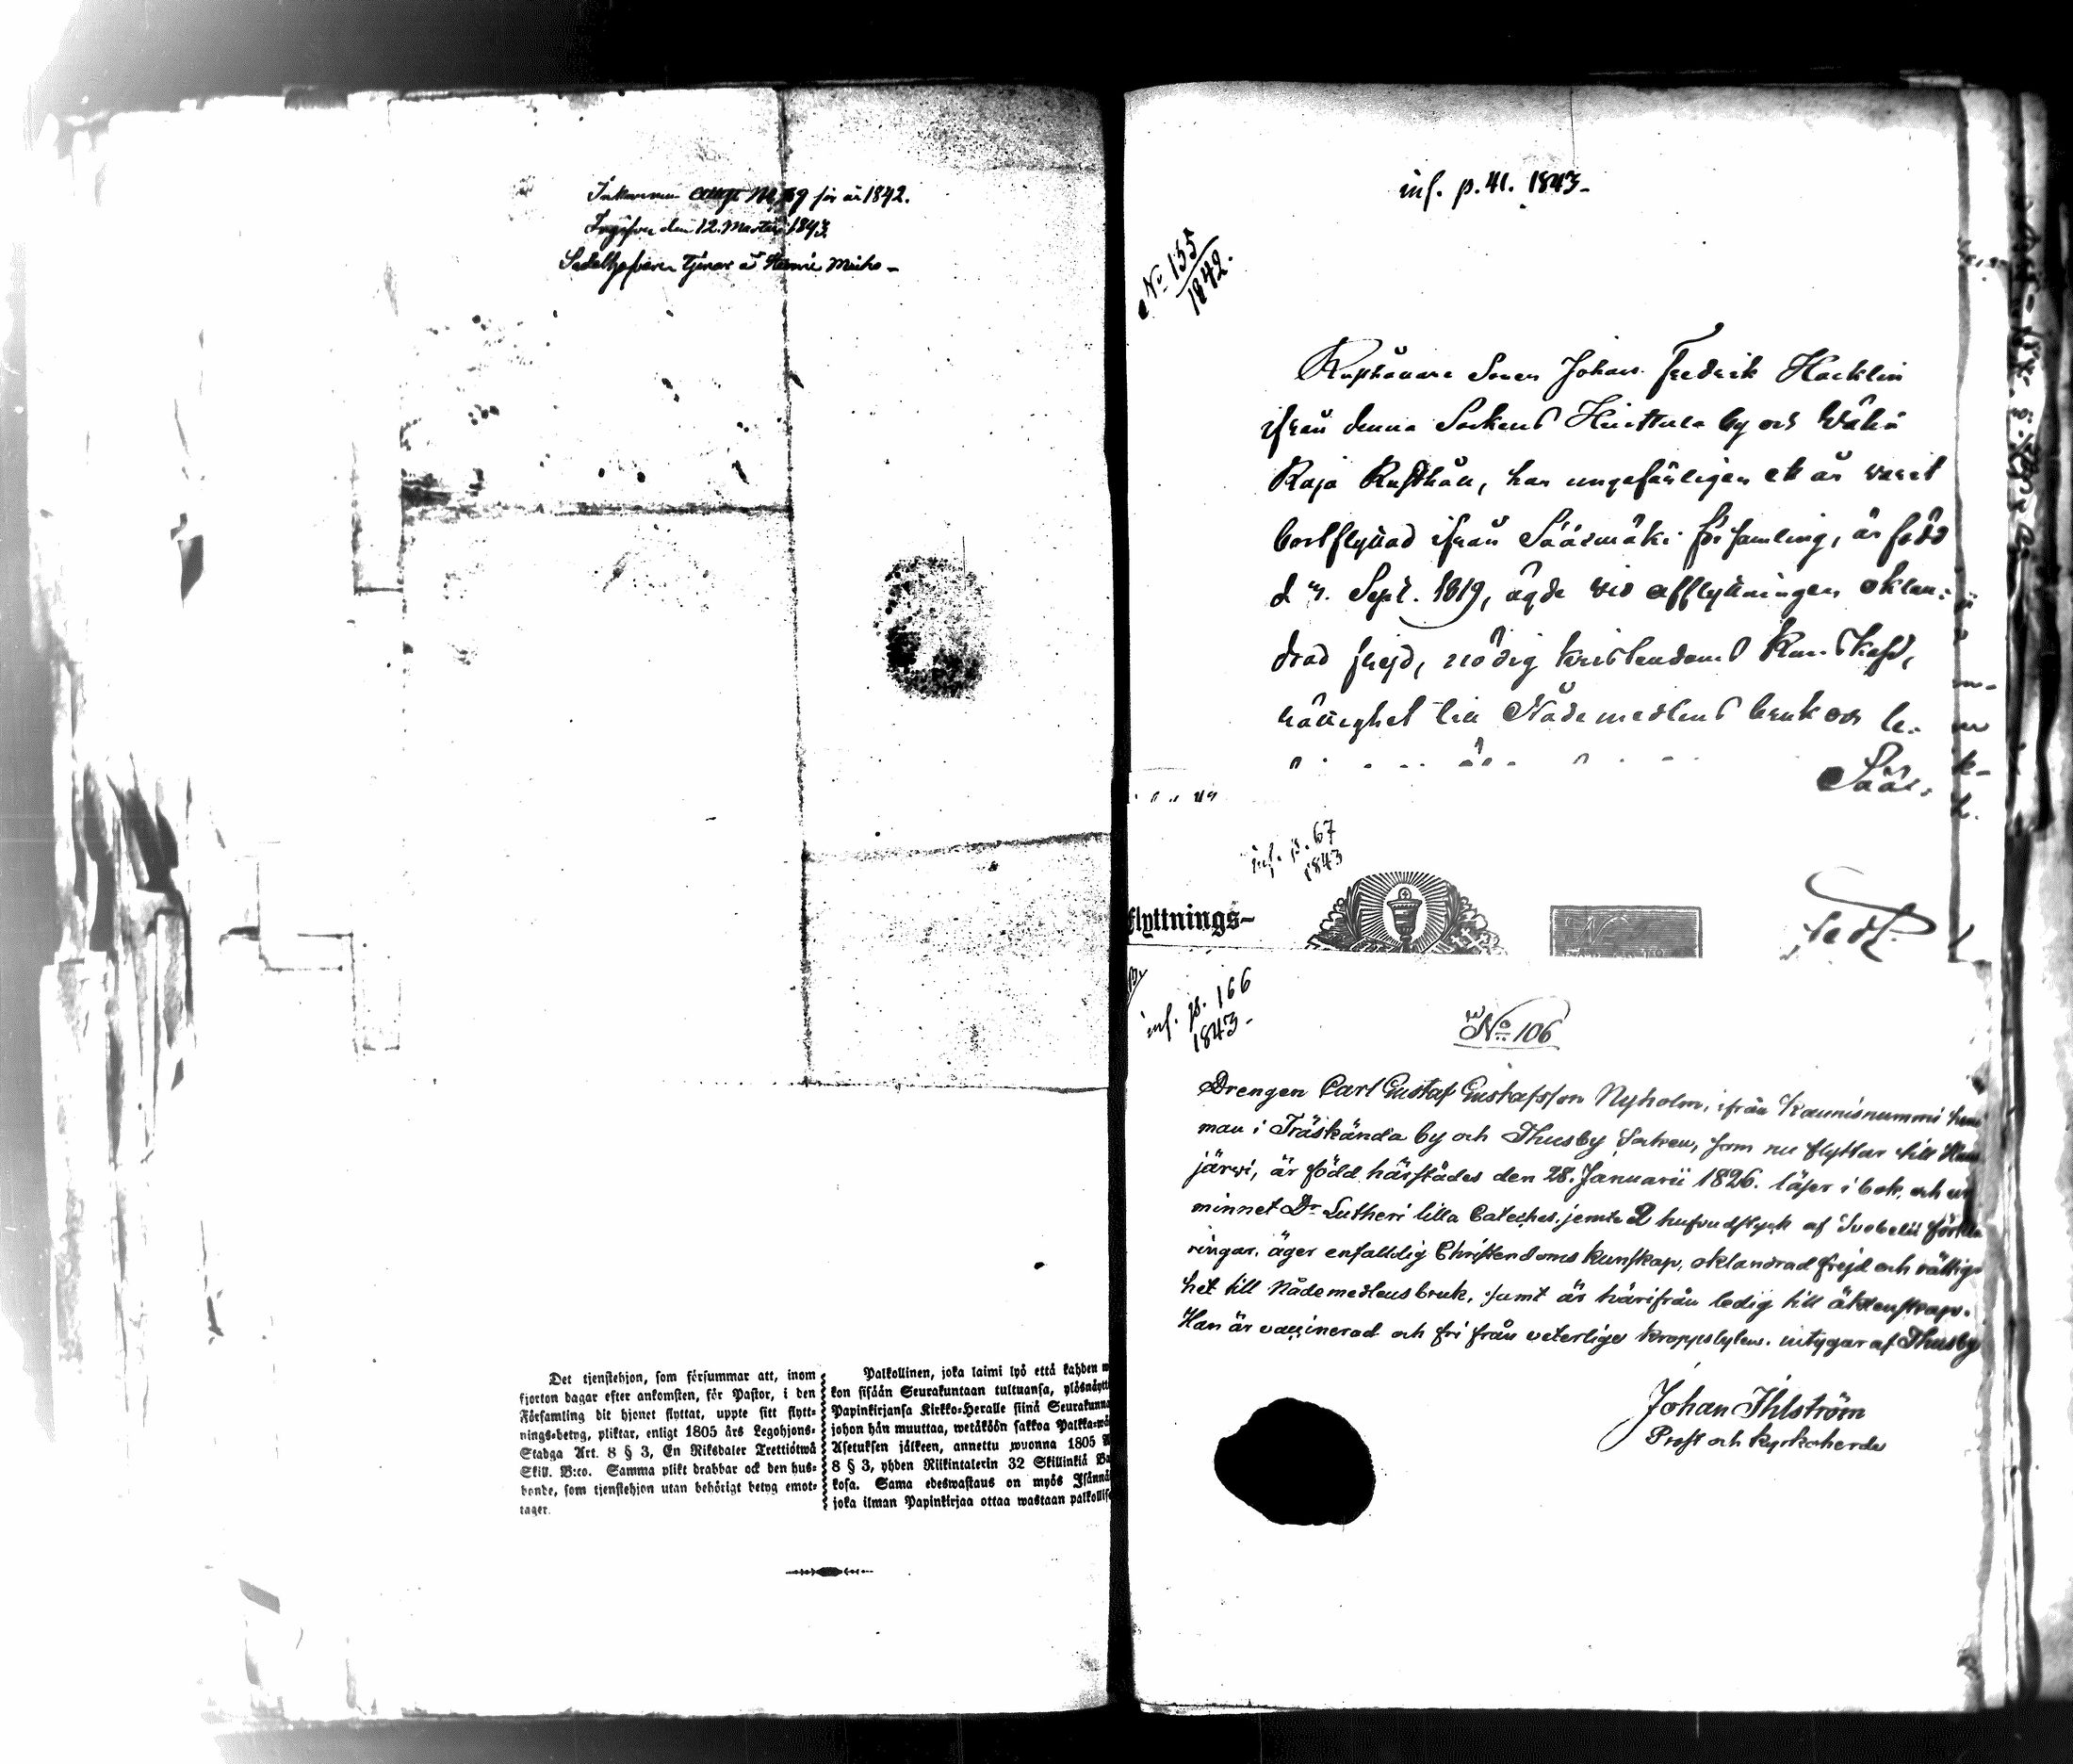 Inkommen N 59 för år 1842.
den 12. Martii 1843
Sedelhafvaren tjenar å
Det tjenstehjon, som försummar att, inom
fjorton dagar efter ankomsten, för Pastor, i den
Församling dit hjonet flyttat, uppte sitt flytt-
nings-betyg, pliktar, enligt 1805 års Legohjons-
Stadga Art. 8 § 3, En Riksdaler Trettiotwå
Skill. B:co. Samma plikt drabbar ock den hus-
bonde, som tjenstehjon utan behörigt betyg emot-
tager.
Palkollinen, joka laimi lyö että kahden w
kon sisään Seurakuntaan tultuansa, ylösnäytt
Papinkirjansa Kirkko-Heralle siinä Seurakunna
johon hän muuttaa, wetäköön sakkoa Palkka-wä
Asetuksen jälkeen, annettu wuonna 1805 A
8 § 3, yhden Riikintalerin 32 Skillinkiä Ba
kosa. Sama edeswastaus on myös Isännä
joka ilman Papinkirjaa ottaa wastaan palkollise
inf. p. 41. 1843-
No 135
1842.
Rusthållare Sonen Johan Fredrik Hacklin
ifrån denna Sockens by och Wähä
Raja Rusthåll, har ungefärligen ett år varit
bortflyttad ifrån Säärmäki församling, är född
d 4. Sept. 1819, ägde vid afflyttningen oklan-
drad frejd, nödig kristendoms kunskap,
rättighet till Nådemedlens bruk och le-
Sää
inf. p. 67
1843
flyttnings-
inf. p. 166
1843-
No 106
Drengen Carl Gustaf Gustafsson Nyholm, ifrån Kaunisnummi hem
man i Träskända by och Thusby Socken, som nu flyttar till
järwi, är född härstädes den 28. Januarii 1826. läser i bok och ur
minnet Dr Lutheri lilla Cateches. jemte 2 hufvudstyck af Svebelii förkla
ringar. äger enfalldig Christendoms kunskap, oklandrad frejd och rättig-
het till Nådemedlens bruk, samt är härifrån ledig till äktenskap.
Han är vaccinerad och fri från veterlige kroppslyten. intygar af Thusby
Johan Ihlström
Prost och Kyrkoherde